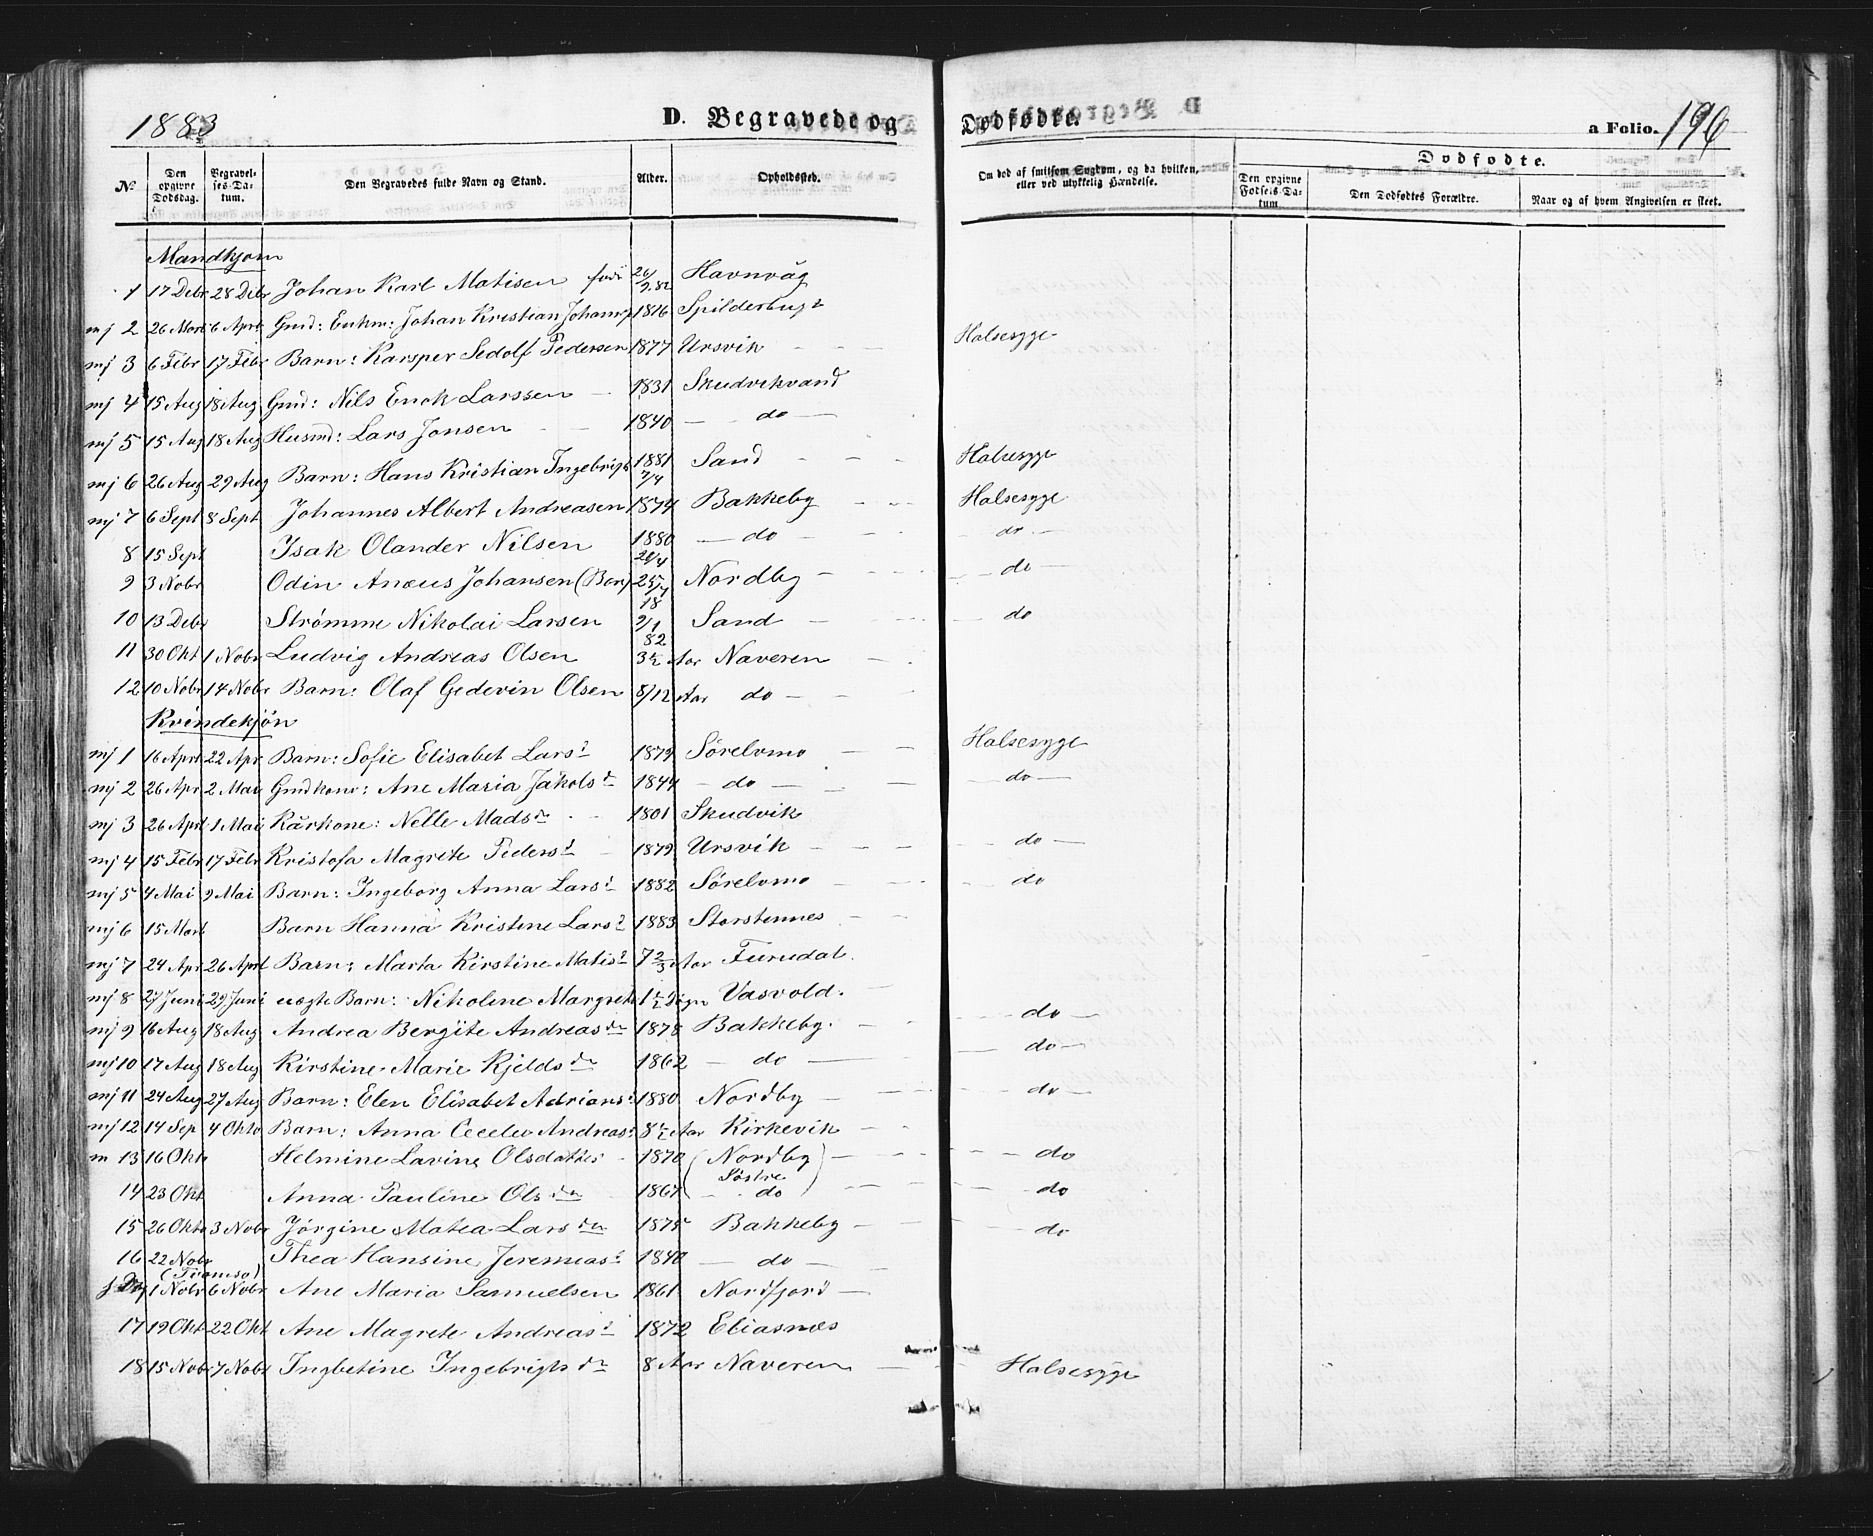 1883 D. Begravede og Dødfødte. a Folio. 196
Dødfødte.
No. Den opgivne Dødsdag. Begravelses-Datum. Den Begravedes fulde Navn og Stand. Alder. Opholdssted. Om død af smitsom Sygdom, og da hvilken, eller ved ulykkelig Hændelse. Den opgivne Fødsels-Datum Den Dødfødtes Forældre. Naar og af hvem Angivelsen er skeet.
Mandkjøn
1 17 Debr 28 Debr Johan Karl Matisen født 26/9 82 Havnvåg
mj 2 26 Mars 6 Apr. Gmd: Enkm: Johan Kristian Johans 1816 Spilderbugt
mj 3 6 Febr 17 Febr Barn: Karsper Sedolf Pedersen 1877 Ursvik Halsesyge
mj 4 15 Aug 18 Aug Gmd: Nils Enok Larssen 1831 Skudvikvand
mj 5 15 Aug 18 Aug Husmd: Lars Jonsen 1840 do
mj 6 26 Aug 29 Aug Barn: Hans Kristian Ingebrigts 1881 7/4 Sand Halsesyge
mj 7 6 Sept 8 Sept Johannes Albert Andreasen 1874 Bakkeby Halsesyge
8 15 Sept Isak Olander Nilsen 1880 do do
9 3 Nobr Odin Anæus Johansen (Barn) 25/7 18 Nordby do
10 13 Debr Strømme Nikolai Larsen 9/1 82 Sand do
11 30 Okt 1 Nobr Ludvig Andreas Olsen 3½ Aar Naveren
12 10 Nobr 14 Nobr Barn: Olaf Gedevin Olsen 8/12 Aar do
Kvindekjøn
mj 1 16 Aprl 22 Apr Barn: Sofie Elisabet Larsd 1879 Sørelvmo Halsesyge
mj 2 26 Apr 2 Mai Gmdkone: Ane Maria Jakobsdr 1844 do do
mj 3 26 Apl 1 Mai Kårkone: Nelle Madsdr 1801 Skudvik
mj 4 15 Febr 17 Febr Kristofa Magrete Pedersd 1879 Ursvik do
mj 5 4 Mai 9 Mai Barn: Ingeborg Anna Larsd 1882 Sørelvmo do
mj 6 15 Mart Barn Hanna Kristine Larsd 1883 Storstennes
mj 7 24 Apr 26 Aprl Barn: Marta Kirstine Matisd 7 2/3 Aar Furudal.
mj 8 27 Juni 29 Juni uægte Barn: Nikoline Margrete 1½ Døgn Vasvold.
mj 9 16 Aug 18 Aug Andrea Bergite Andreasdr 1878 Bakkeby. do
mj 10 17 Aug 18 Aug Kirstine Marie Kjeldsdr 1862 do do
mj 11 24 Aug 27 Aug Barn: Elen Elisabet Adriansd 1880 Nordby do
mj 12 14 Sep 4 Okto Barn: Anna Andreasd 8½ Aar Kirkevik
m 13 16 Okto Helmine Lavine Olsdatter 1870 (Nordby) do
14 23 Okt Anna Pauline Olsdr 1867 Søstre do do
15 26 Okto 3 Nobr Jørgine Matea Larsdr 1875 Bakkeby do
16 22 Nobr Thea Hansine Jeremiasd 1840 do
(Tromsø)
1 Nobr 6 Nobr Ane Maria Samuelsen 1861 Nordfjord
17 19 Okt 22 Okt Ane Magrete Andreasd 1872 Eliasnæs
18 15 Nobr 7 Nobr Ingbetine Ingebrigtsdr 8 Aar Naveren Halsesyge